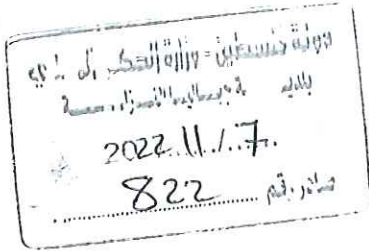 دولة فلسطين - وزارة الحكم المحلي
بلدية
2022.11./.7.
صادر رقم 822